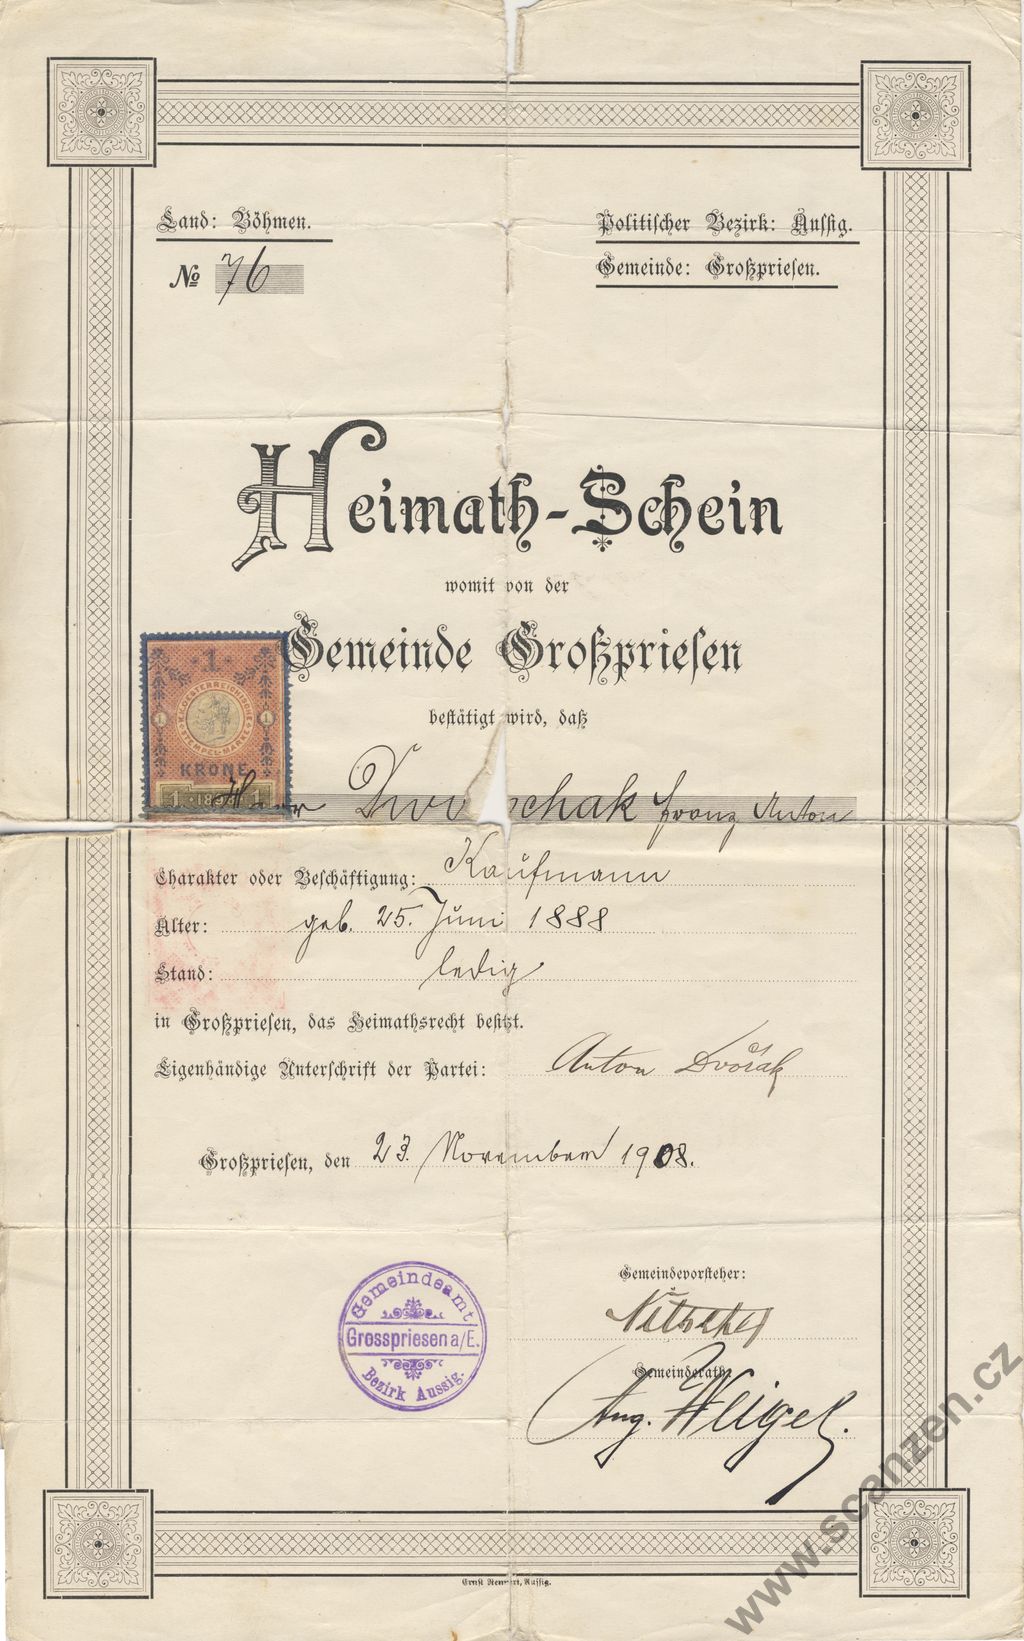 Land: Böhmen.
Politischer Bezirk: Aussig.
№ 76
Gemeinde: Großpriesen.
Heimath-Schein
womit von der
Gemeinde Großpriesen
bestätigt wird, daß
1
K.K. OESTERREICHISCHE STEMPEL-MARKE
1 1
KRONE
1 1
Herr chak Franz Anton
Charakter oder Beschäftigung: Kaufmann
Alter: geb. 25. Juni 1888
Stand: ledig
in Großpriesen, das Heimathsrecht besitzt.
Eigenhändige Unterschrift der Partei: Anton Dvořák
Großpriesen, den 23. November 1908.
Gemeindeamt
Grosspriesen a/E.
Bezirk Aussig.
Gemeindevorsteher:
Gemeinderath:
Aug. Weigel.
Ernst Rennert, Aussig.
www.scanzen.cz